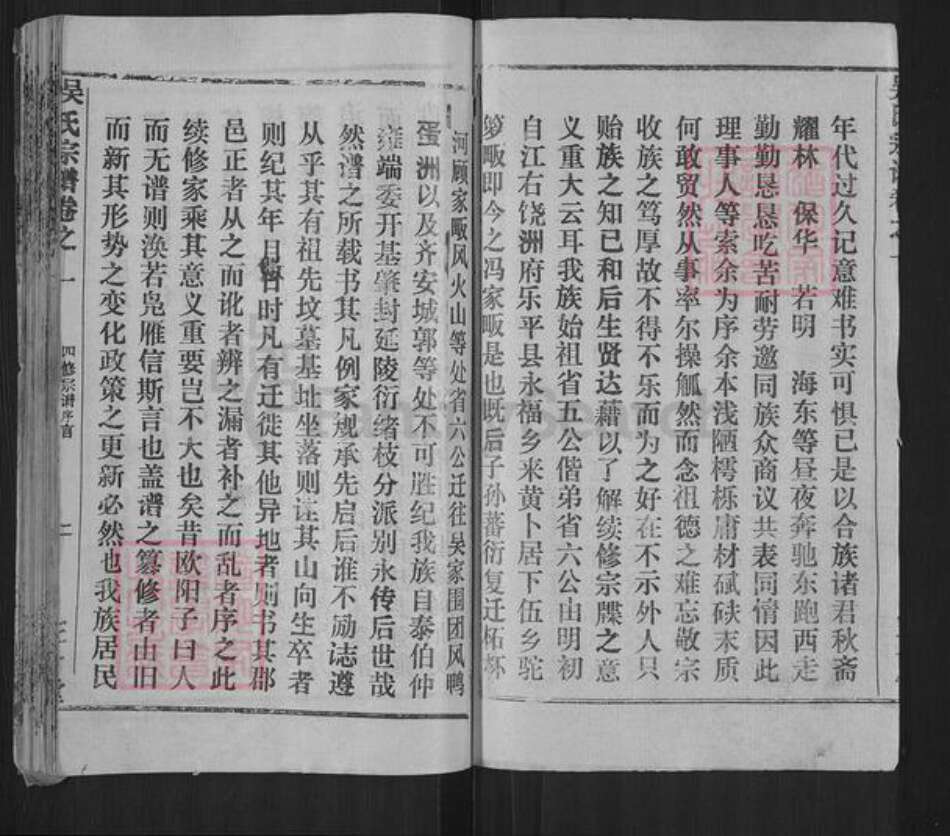 年代过久记意难书实可惧已是以合族诸君秋斋
耀林 保华 若明 海东等昼夜奔驰东跑西走
勤勤恳恳吃苦耐劳邀同族众商议共表同情因此
理事人等索余为序余本浅陋樗栎庸材碔砆末质
何敢贸然从事率尔操觚然而念祖德之难忘敬宗
收族之笃厚故不得不乐而为之好在不示外人只
贻族之知已和后生贤达藉以了解续修宗牒之意
义重大云耳我族始祖省五公偕弟省六公山明初
自江右饶洲府乐平县永福乡来黄卜居下伍乡驼
箩畈即今之冯家畈是也既后子孙蕃衍复迁柘
河顾家畈风火山等处省六公迁往吴家围团风鸭
蛋洲以及齐安城郭等处不可胜纪我族自泰伯仲
雍端委开基肇封延陵衍绪枝分派别永传后世哉
然谱之所载书其凡例家规承先启后谁不励志遵
从乎其有祖先坟墓基址坐落则注其山向生卒者
则纪其年月日时凡有迁徙其他异地者则书其郡
邑正者从之而讹者辨之漏者补之而乱者序之此
续修家乘其意义重要岂不大也矣昔欧阳子曰人
而无谱则涣若凫雁信斯言也盖谱之纂修者由旧
而新其形势之变化政策之更新必然也我族居民
吴氏宗谱卷之一
四修宗谱序言
二